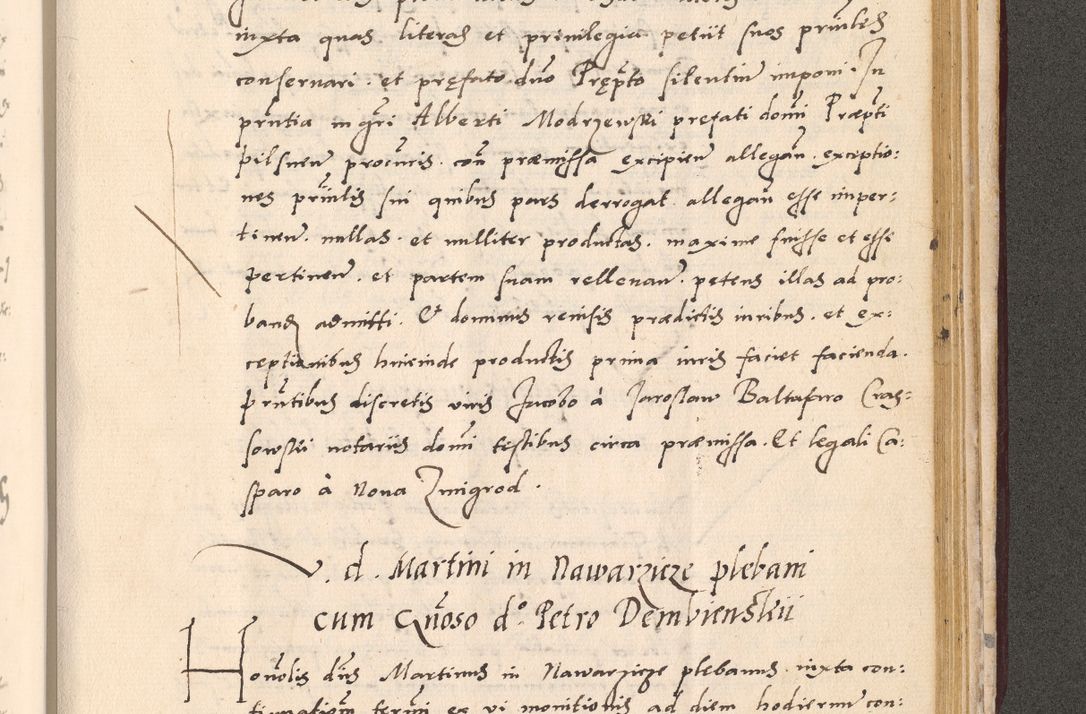 iuxta quas literas et privilegia petiit suos priuiles
conseruari. et pręfato duo Pręp̄to silentiu imponi. In
pr̄ntia mgr̄i Alberti Modrzewski prefati domi Præpti
pilsnen procuris. con præmissa excipien allegan. exceptio:
nes priuilis sui quibus pars derrogat. allegan esse imper:
tinen. nullas. et nulliter productas. maxime fuisse et esse
pertinen. et partem suam rellenan. petens illas ad pro:
band admitti. Et dominus reuisis prædictis iuribus. et ex:
ceptionibus hincinde productis prima iuris faciet facienda.
Prn̄tibus discretis viris Jacobo à Jaroslaw Baltasaro Cras:
sowskii notariis domi testibus circa præmissa. Et legali Ca:
sparo à Noua Zmigrod.
V. d. Martini in Nawarzicze plebani
cum Gn̄oso d° Petro Dembienskii
Hono͞lis dn̄s Martinus in Nawarzicze plebanus iuxta con:
tinuationem termi ex vi monitionis ad diem hodiernu con: